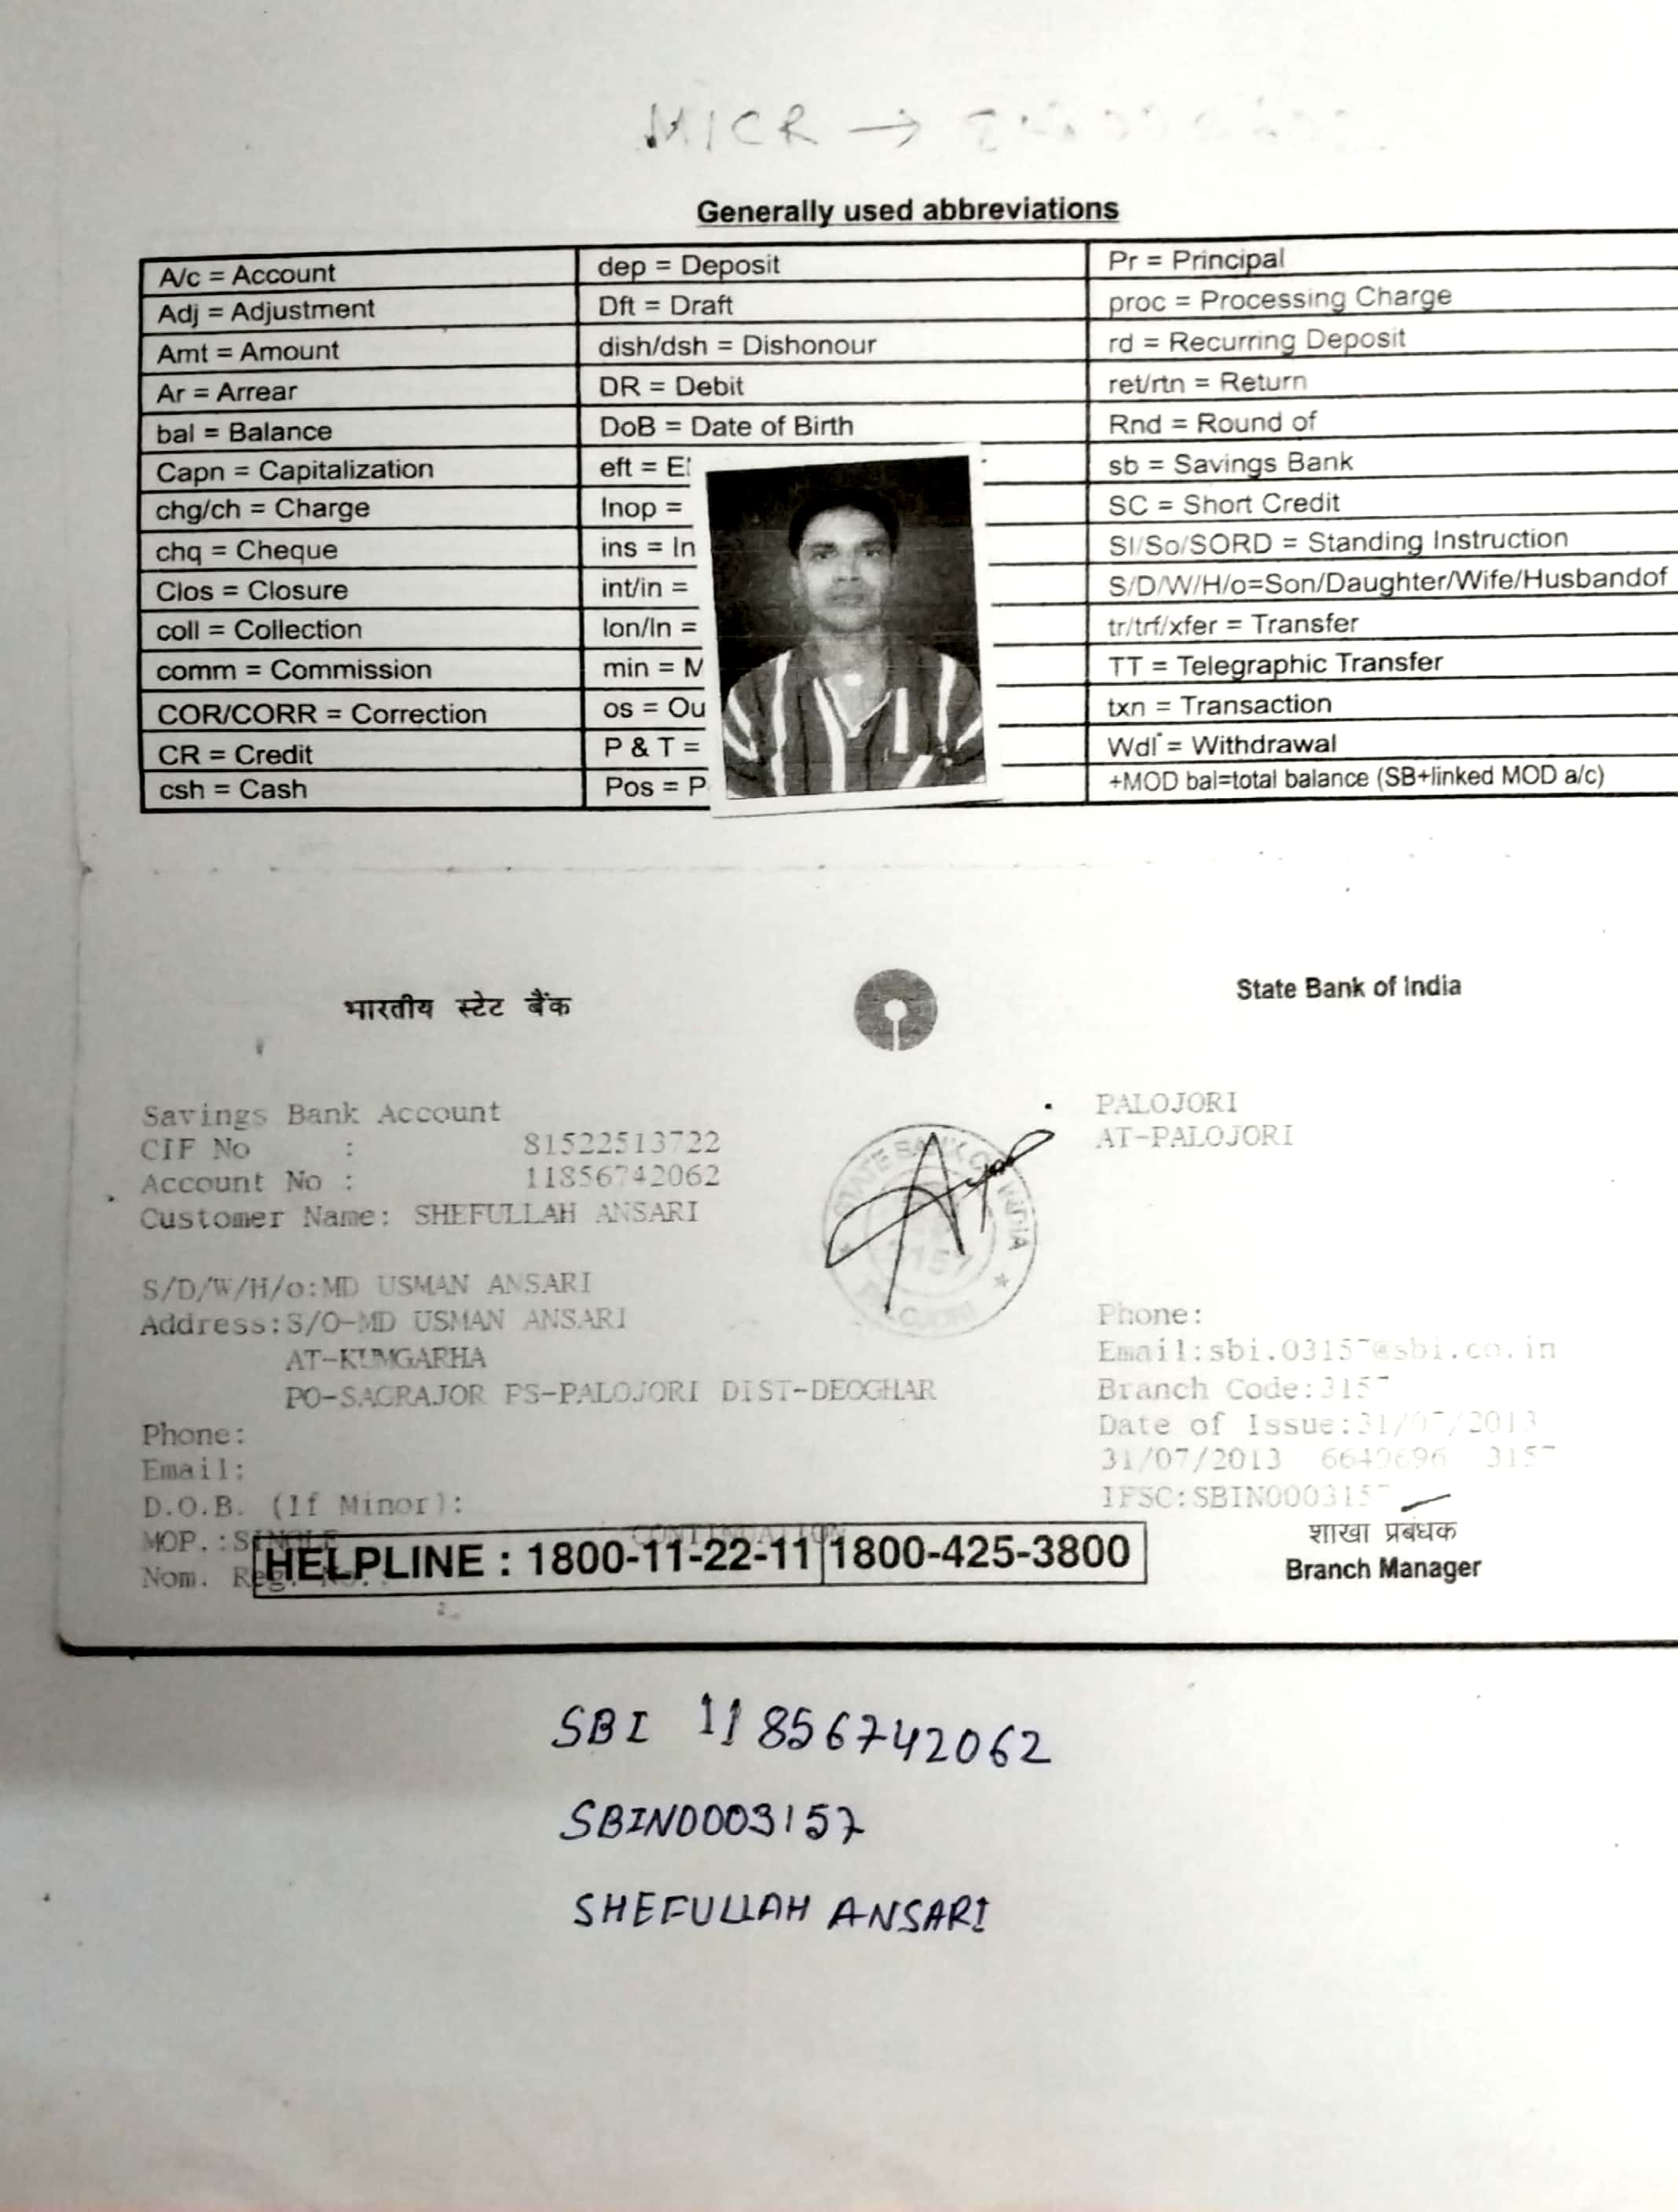 MICR →
Generally used abbreviations
A/c = Account dep = Deposit Pr = Principal
Adj = Adjustment Dft = Draft proc = Processing Charge
Amt = Amount dish/dsh = Dishonour rd = Recurring Deposit
Ar = Arrear DR = Debit ret/rtn = Return
bal = Balance DoB = Date of Birth Rnd = Round of
Capn = Capitalization eft = sb = Savings Bank
chg/ch = Charge Inop = SC = Short Credit
chq = Cheque ins = In SI/So/SORD = Standing Instruction
Clos = Closure int/in = S/D/W/H/o=Son/Daughter/Wife/Husbandof
coll = Collection lon/ln = tr/trf/xfer = Transfer
comm = Commission min = M TT = Telegraphic Transfer
COR/CORR = Correction os = Ou txn = Transaction
CR = Credit P & T = Wdl = Withdrawal
csh = Cash Pos = P +MOD bal=total balance (SB+linked MOD a/c)
भारतीय स्टेट बैंक State Bank of India
Savings Bank Account PALOJORI
CIF No : 81522513722 AT-PALOJORI
Account No : 11856742062
Customer Name: SHEFULLAH ANSARI
STATE BANK OF INDIA
PALOJORI
S/D/W/H/o:MD USMAN ANSARI
Address:S/O-MD USMAN ANSARI Phone:
AT-KUMGARHA Email:sbi.03157@sbi.co.in
PO-SAGRAJOR PS-PALOJORI DIST-DEOGHAR Branch Code:3157
Phone: Date of Issue:31/07/2013
Email: 31/07/2013 3157
D.O.B. (If Minor): IFSC:SBIN0003157
MOP.:SINGLE CONTINUATION शाखा प्रबंधक
Nom. Reg. No.: HELPLINE : 1800-11-22-11 1800-425-3800 Branch Manager
SBI 11856742062
SBIN0003157
SHEFULLAH ANSARI